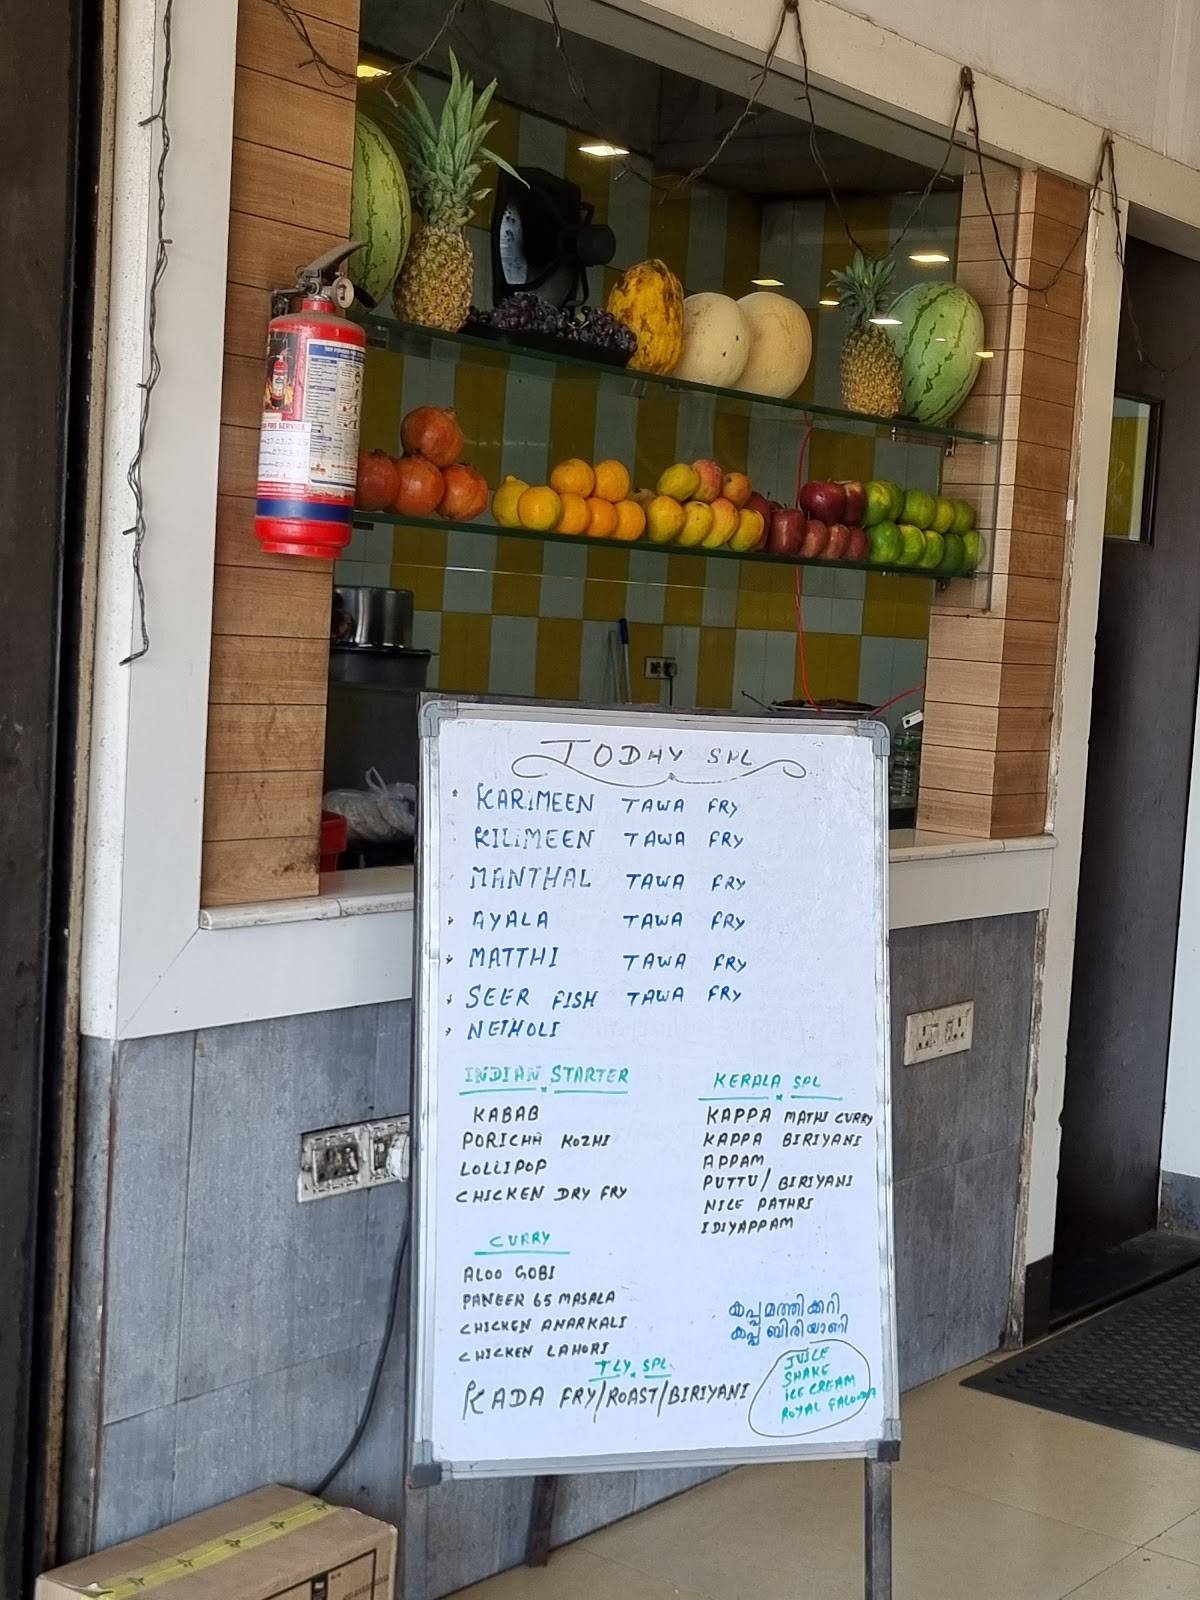 TODAY SPL
KARIMEEN TAWA FRY
KILIMEEN TAWA FRY
MANTHAL TAWA FRY
AYALA TAWA FRY
MATTHI TAWA FRY
SEER FISH TAWA FRY
NETHOLI
INDIAN STARTER
KABAB
PORICHA KOZHI
LOLLIPOP
CHICKEN DRY FRY
KERALA SPL
KAPPA MATHI CURRY
KAPPA BIRIYANI
APPAM
PUTTU/BIRIYANI
NICE PATHRI
IDIYAPPAM
CURRY
ALOO GOBI
PANEER 65 MASALA
CHICKEN ANARKALI
CHICKEN LAHORI
കപ്പ മത്തിക്കറി
കപ്പ ബിരിയാണി
TLY SPL
KADA FRY/ROAST/BIRIYANI
JUICE
SHAKE
ICE CREAM
ROYAL FALOODA
FIRE SERVICE